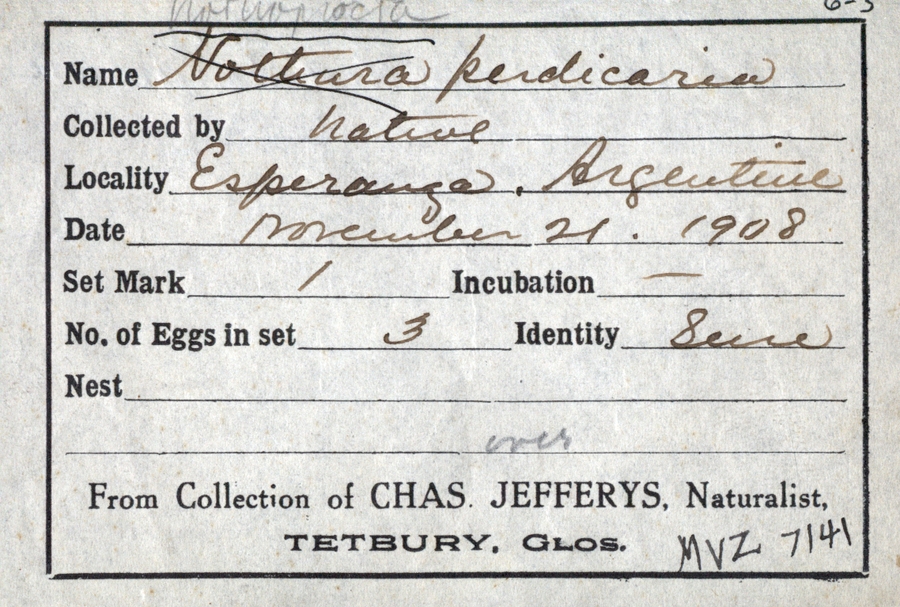 Nothoprocta
6-3
Name Nothura perdicaria
Collected by Native
Locality Esperanza. Argentine
Date November 21. 1908
Set Mark 1 Incubation —
No. of Eggs in set 3 Identity Sure
Nest
over
From Collection of CHAS. JEFFERYS, Naturalist,
TETBURY, GLOS.
MVZ 7141